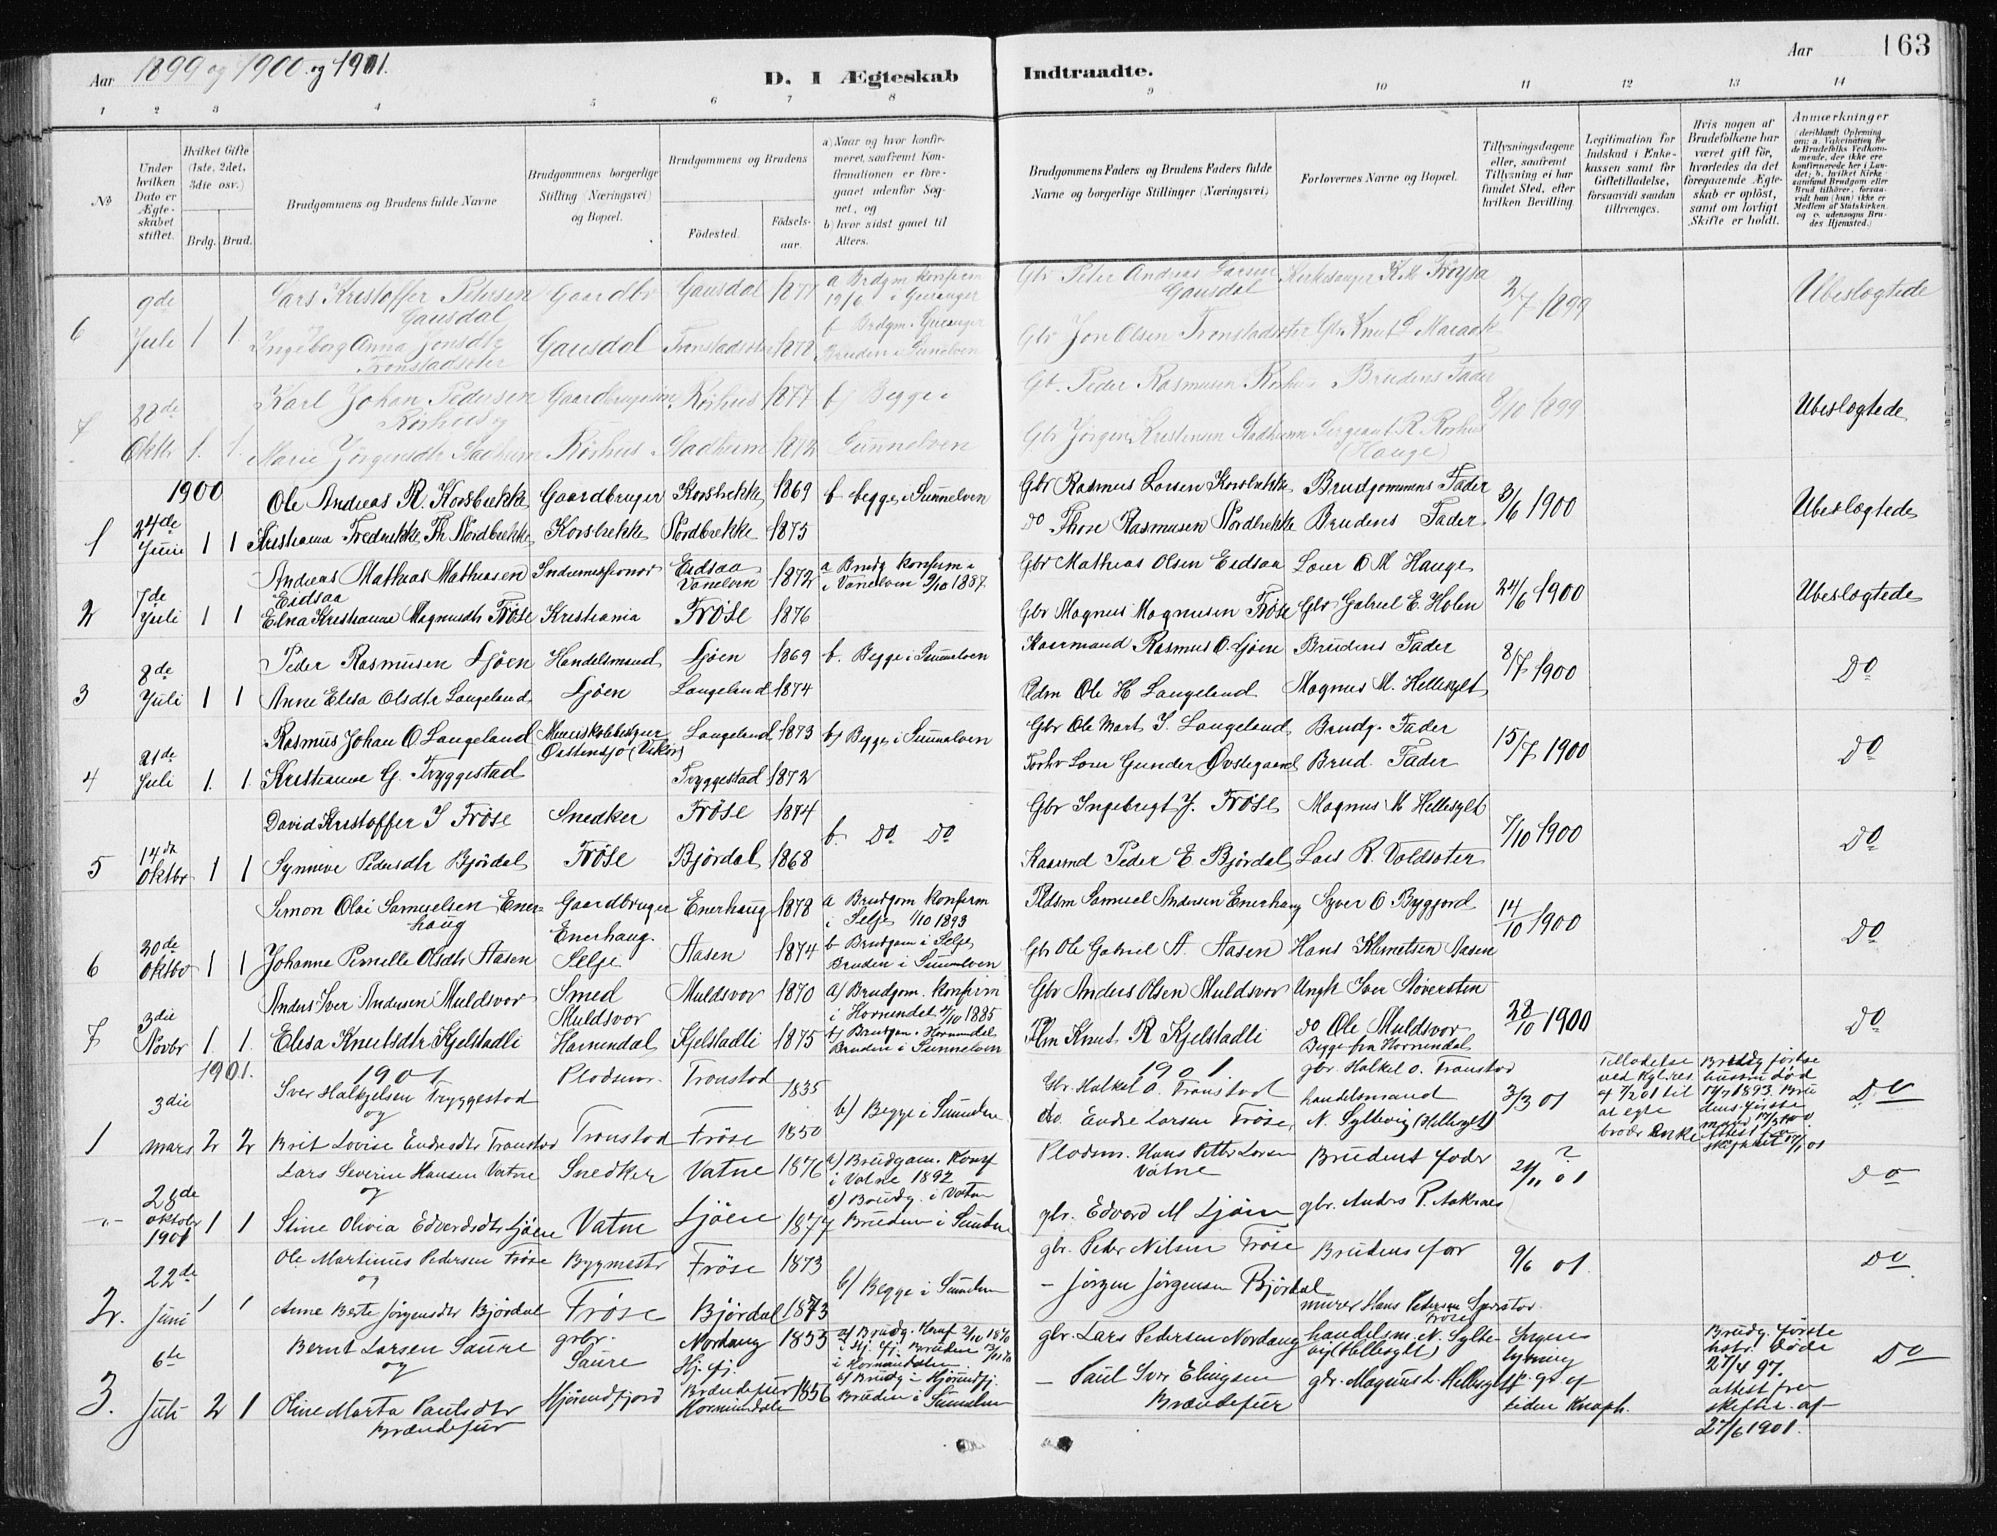 Aar 1899 og 1900 og 1901.
D. I Ægteskab Indtraadte.
Aar 163
1 2 3 4 5 6 7 8 9 10 11 12 13 14
№
Under hvilken Dato er Ægteskabet stiftet.
Hvilket Gifte (1ste, 2det, 3die osv.)
Brdg. Brud.
Brudgommens og Brudens fulde Navne
Brudgommens borgerlige Stilling (Næringsvei) og Bopæl.
Brudgommens og Brudens
Fødested.
Fødselsaar.
a) Naar og hvor konfirmeret, saafremt Konfirmationen er foregaaet udenfor Sognet, og
b) hvor sidst gaaet til Alters.
Brudgommens Faders og Brudens Faders fulde Navne og borgerlige Stillinger (Næringsvei)
Forlovernes Navne og Bopæl.
Tillysningsdagene eller, saafremt Tillysning ei har fundet Sted, efter hvilken Bevilling.
Legitimation for Indskud i Enkekassen samt for Giftetilladelse, forsaavidt saadan tiltrænges.
Hvis nogen af Brudefolkene har været gift før, hvorledes da det foregaaende Ægteskab er opløst, samt om lovligt Skifte er holdt.
Anmærkninger
(deriblandt Oplysning om: a. Vakcination for de Brudefolks Vedkommende, der ikke ere konfirmerede her i Landet; b. hvilket Kirkesamfund Brudgom eller Brud tilhører, forsaavidt han (hun) ikke er Medlem af Statskirken, og c. udensogns Brudes Hjemsted.)
6 9de Juli 1 1
Lars Kristoffer Petersen Gausdal Gaardbr Gausdal 1877
a Brdgm konfirm i Geiranger
Gbr Peter Andreas Larsen Gausdal Kirkesanger K.M. Frøysa 2/7 1899 Ubeslægtede
Ingeborg Anna Jonsdtr Tronstadsæter Gausdal Tronstadsæter 1872
b Brdgm. Geranger
Bruden i Sunelven
Gbr Jon Olsen Tronstadsæter Gbr Knut L Maraak
7 22de Oktbr 1. 1.
Karl Johan Pedersen Rørhus og Gaardbrugersøn Rørhus 1877 b) Begge i
Gb. Peder Rasmusen Rørhus Brudens Fader 8/10 1899 Ubeslægtede
Marie Jørgensdtr Stadheim Rørhus Stadheim 1872 Sunnelven
Gbr Jørgen Kristensen Stadheim Sergeant R. Rørhus (Hauge)
1900
1 24de Juni 1 1
Ole Andreas R. Korsbrekke Gaardbruger Korsbrekke 1869 b begge i Sunnelven
Gbr Rasmus Larsen Korsbrekke Brudgommens Fader 3/6 1900 Ubeslægtede
Kristianna Fredrikke Th Nordbrekke Korsbrekke Nordbrekke 1875
do Thore Rasmusen Nordbrekke Brudens Fader
2 7de Juli 1 1
Andreas Mathias Mathiasen Eidsaa Indremissionær Eidsaa Vanelven 1872
a Brudg konfirm i i Vanelven 9/10 1887.
Gbr Mathias Olsen Eidsaa Lærer O M Hauge 24/6 1900 Ubeslægtede
Elna Kristianne Magnusdtr Frøse Kristiania Frøse 1876
Gbr Magnus Magnusen Frøse Gbr Gabriel E. Holen
3 8de Juli 1 1
Peder Rasmusen Ljøen Handelsmand Ljøen 1869 b. Begge i Sunnelven
Kaarmand Rasmus O. Ljøen Brudens Fader 8/7 1900 Do
Anne Elisa Olsdtr Langeland Ljøen Langeland 1874
Pldm Ole H Langeland Magnus M. Hellesylt
4 21de Juli 1. 1.
Rasmus Johan O. Langeland 	Østensjø (Vikør) Langeland 1873 b) Begge i Sunnelven
Gbr Ole Mart. I. Langeland Brudg. Fader 15/7 1900 Do
Kristianne G. Tryggestad Tryggestad 1872
Forhv Lærer Gunder Øvstegaard Brud. Fader
5 14de Oktbr 1 1
David Kristoffer I Frøse Snedker Frøse 1874 b. Do Do
Gbr Ingebrigt J. Frøse Magnus M Hellesylt 7/10 1900 Do
Synneve Pedersdtr Bjørdal Frøse Bjørdal 1868
Kaarmd Peder E. Bjørdal Lars R. Voldsæter
6 20de Oktbr 1 1
Simon Olai Samuelsen Enerhaug Gaardbruger Enerhaug 1878
a Brudgom konfirm i Selje 1/10 1893
Pldsm Samuel Andersen Enerhaug Syver O Bygjord 14/10 1900 Do
Johanne Pernille Olsdtr Aasen Enerhaug. Selje Aasen 1874
b Brudgom i Selje
Bruden i Sunnelven
Gbr Ole Gabriel A. Aasen Hans Klemetsen Aasen
7 3die Novbr 1. 1.
Anders Iver Andersen Muldsvor Smed Muldsvor 1870
a) Brudgom. konfirm i Hornindal 4/10 1885
Gbr Anders Olsen Muldsvor Ungk Iver Støversten 28/10 1900 Do
Elisa Knutsdtr Kjelstadli Muldsvor Hornindal Kjelstadli 1875
b) Brudgom. Hornindal
Bruden i Sunnelven
Plm Knut R Kjelstadli do Ole Muldsvor
Begge fra Hornindal
1901. 1901 1901
1 3die mars 2 2
Iver Halkjelsen Tryggestad og Pladsm. Tronstad 1835 b) Begge i Sunnelven
Gbr. Halkel O. Tronstad gbr. Halkel O. Tronstad handelsmand 3/3 01
Tilladelse ved Kgl. res. af 7/2 01 til at egte broders Enke
Brudg. første hustru død 1893. Brudens første mand
Do
Brit Lovise Endresdtr Tronstad Tronstad Frøse 1850
do. Endre Larsen Frøse N. Syltevig (Hellesylt)
-"- 28de oktober 1901 1 1
Lars Severin Hansen Vatne og Snedker Vatne 1876
a) Brudgom. Konf i Vatne 1892
b) Brudg. i Vatn
Pladsm. Hans Petter Larsen Vatne Brudens fader ? 24/11 01 Do
Stine Olivia Edvardsdtr Ljøen Vatne Ljøen 1877 Bruden i Sunnelven
gbr. Edvard M Ljøen gbr. Anders P. Aaknes
2. 22de Juni 1 1
Ole Martinus Pedersen Frøse og Bygmester Frøse 1873 b) Begge i Sunnelven
gbr. Peder Nilsen Frøse Brudens far 9/6 01 Do
Anne Berte Jørgensdtr Bjørdal Frøse Bjørdal 1873
— Jørgen Jørgensen Bjørdal murer Hans Pedersen Frøse
3. 6te Juli 2 1
Bernt Larsen Saure og grbr. Saure Nordang Hj. fj. 1853
a) Brudg. Konf i Hj. fj. Bruden i Hornindalen.
gbr. Lars Pedersen Nordang handelsm. N. Syltevig (Hellesylt) Ingen lysning
Brudg. første hstr. døde 27/4 97. attest fra skifter. af 27/6 1901.
Do
Oline Marta Paulsdtr Brændefur Hjørundfjord Brændefur Hornindalen 1856
b) Brudg i Hjørundfj.
Bruden i Sunnelven
— Paul Iver Elingsen Brændefur gbr. Magnus L. Hellesylt